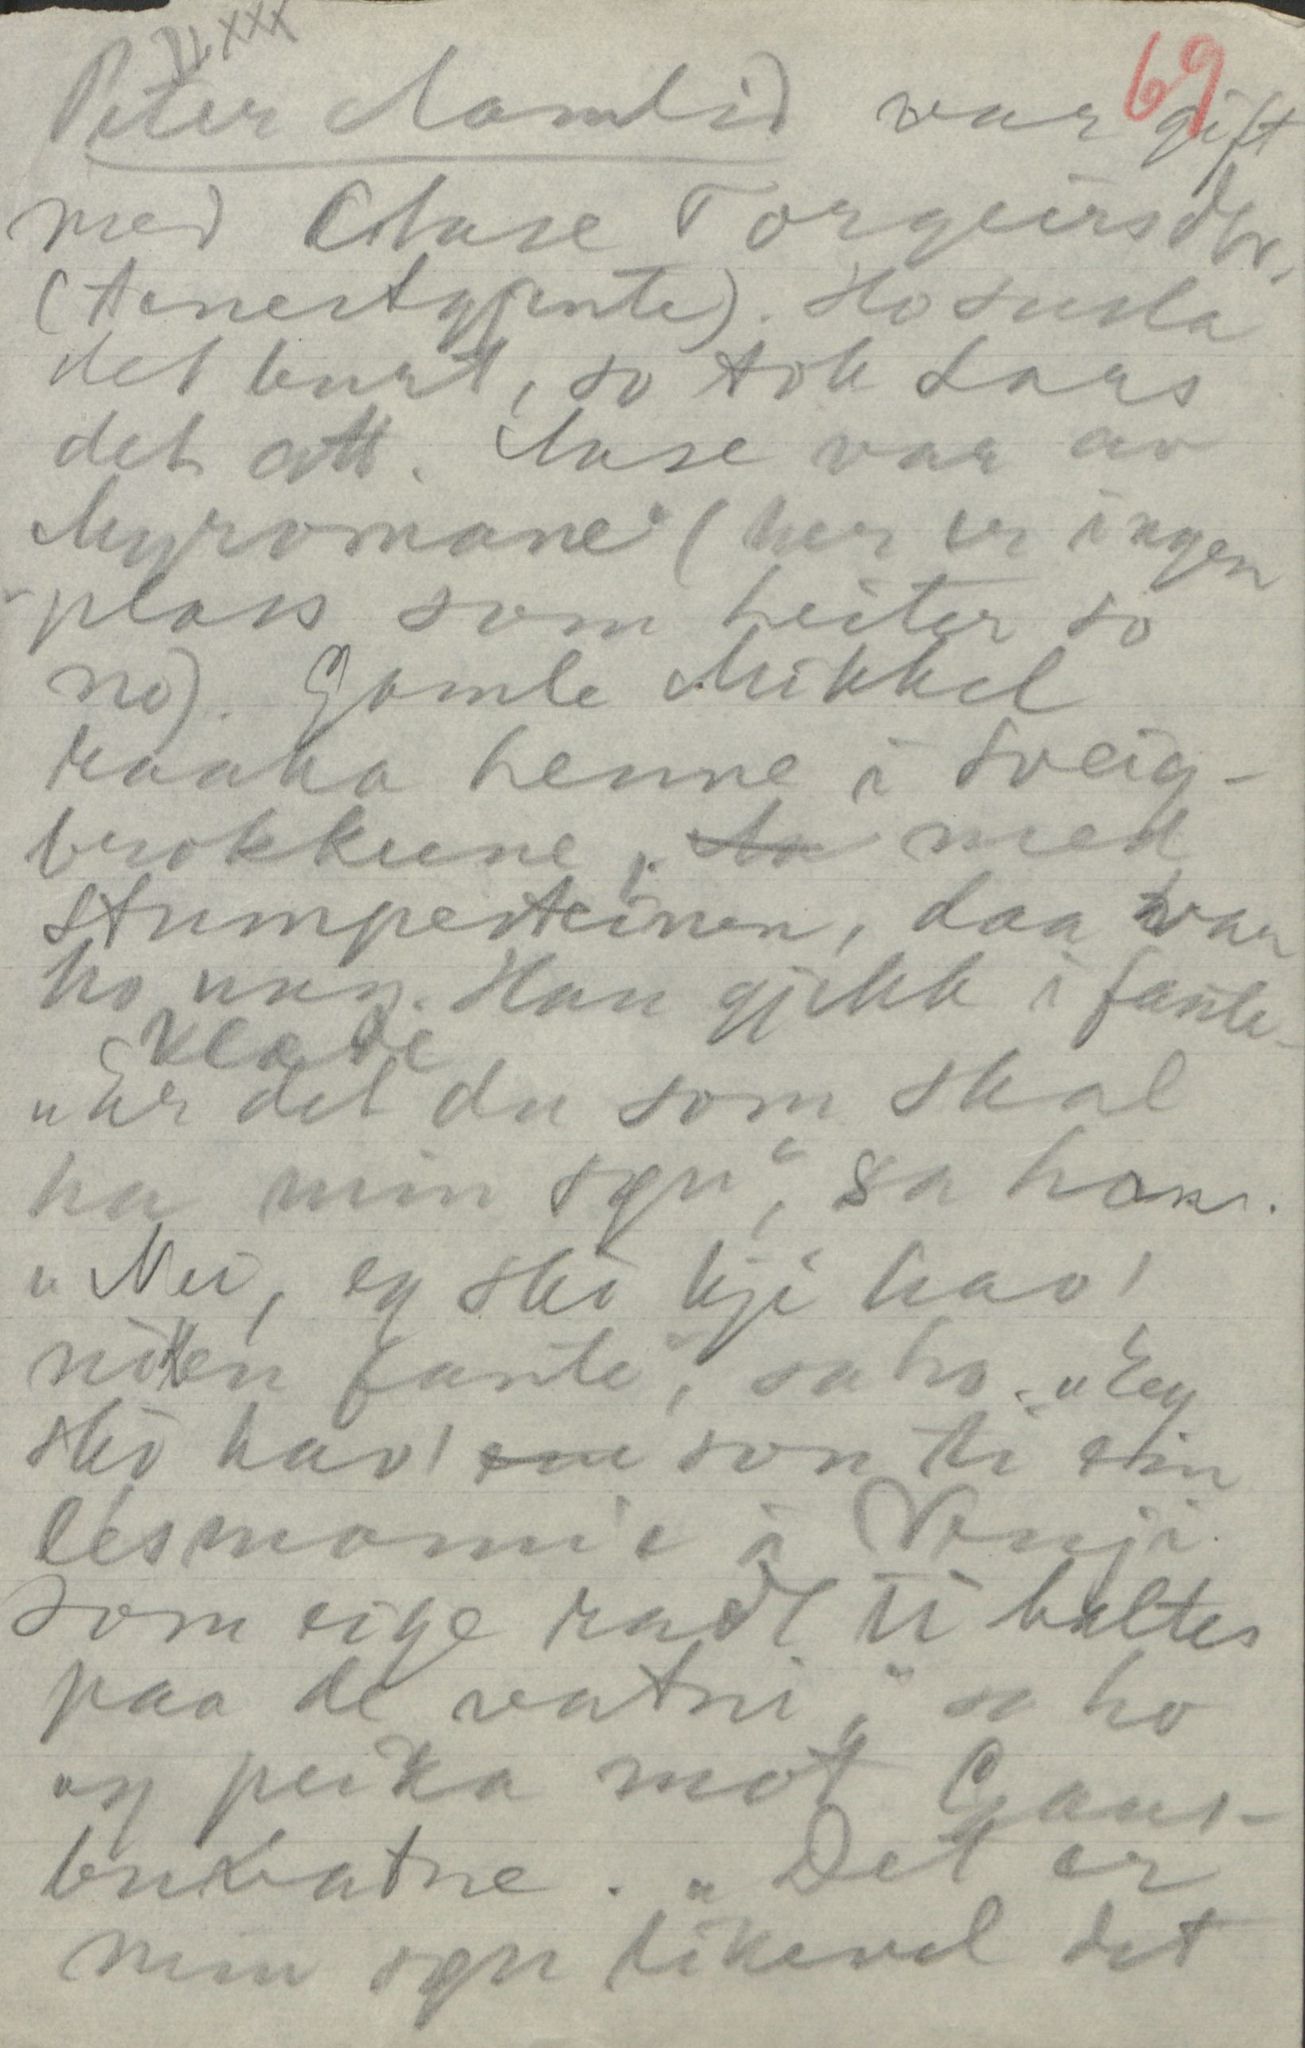 69
Peter Aamlid var gift
med Aase Torgeirsdtr.
(tenestgjente). Ho susla
det burt, so tok Lars
det att. Aase var av
Myromane (her er ingen
plass som heiter so
no). Gamle Mikkel
raaka henne i Sveig-
brokkune, med
stumpesteinen, daa var
ho ung. Han gjikk i fante-
klæde
"Er det du som skal
ha min søn", sa han.
"Nei, eg ski kji hav'
nokken fante", sa ho. "Eg
ski hav' son ti ein
lesmannie i Vinji
som eige radt ti baltes
paa de vatni," sa ho
og peika mot
. "Det er
min søn likevel det